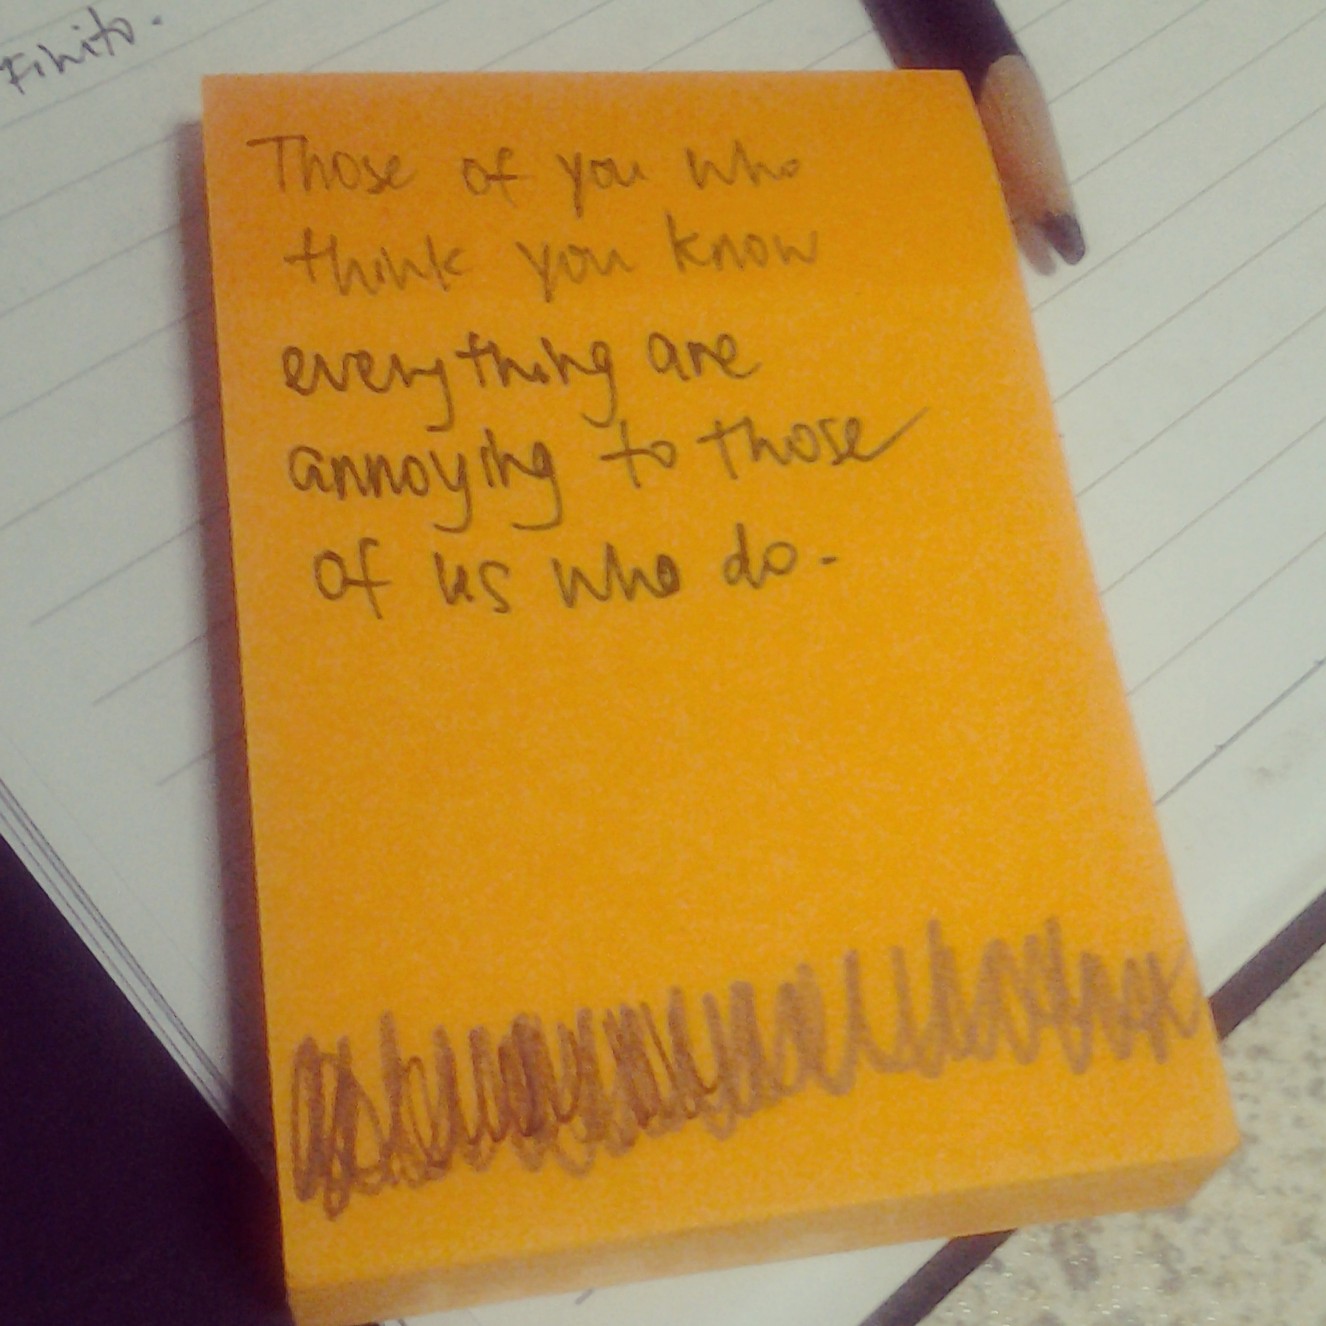 Finito.
Those of you who
think you know
everything are
annoying to those
of us who do.